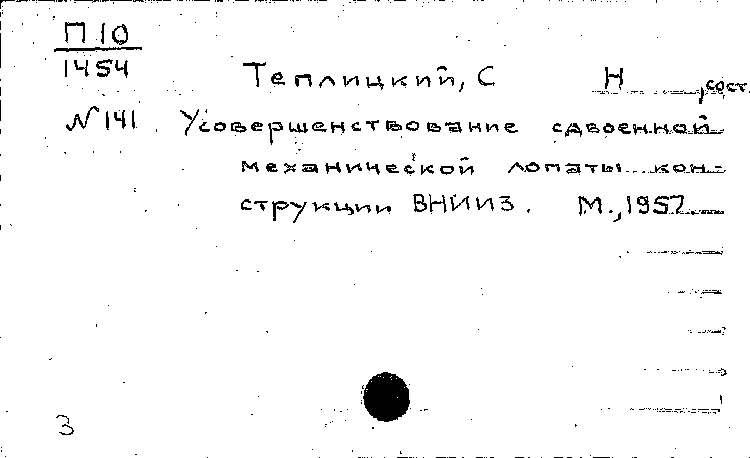 П 10
1454
Теплицкий, С Н , сост.
№ 141 Усовершенствование сдвоенной
механической лопаты кон-
струкции ВНИИЗ. М., 1957
3